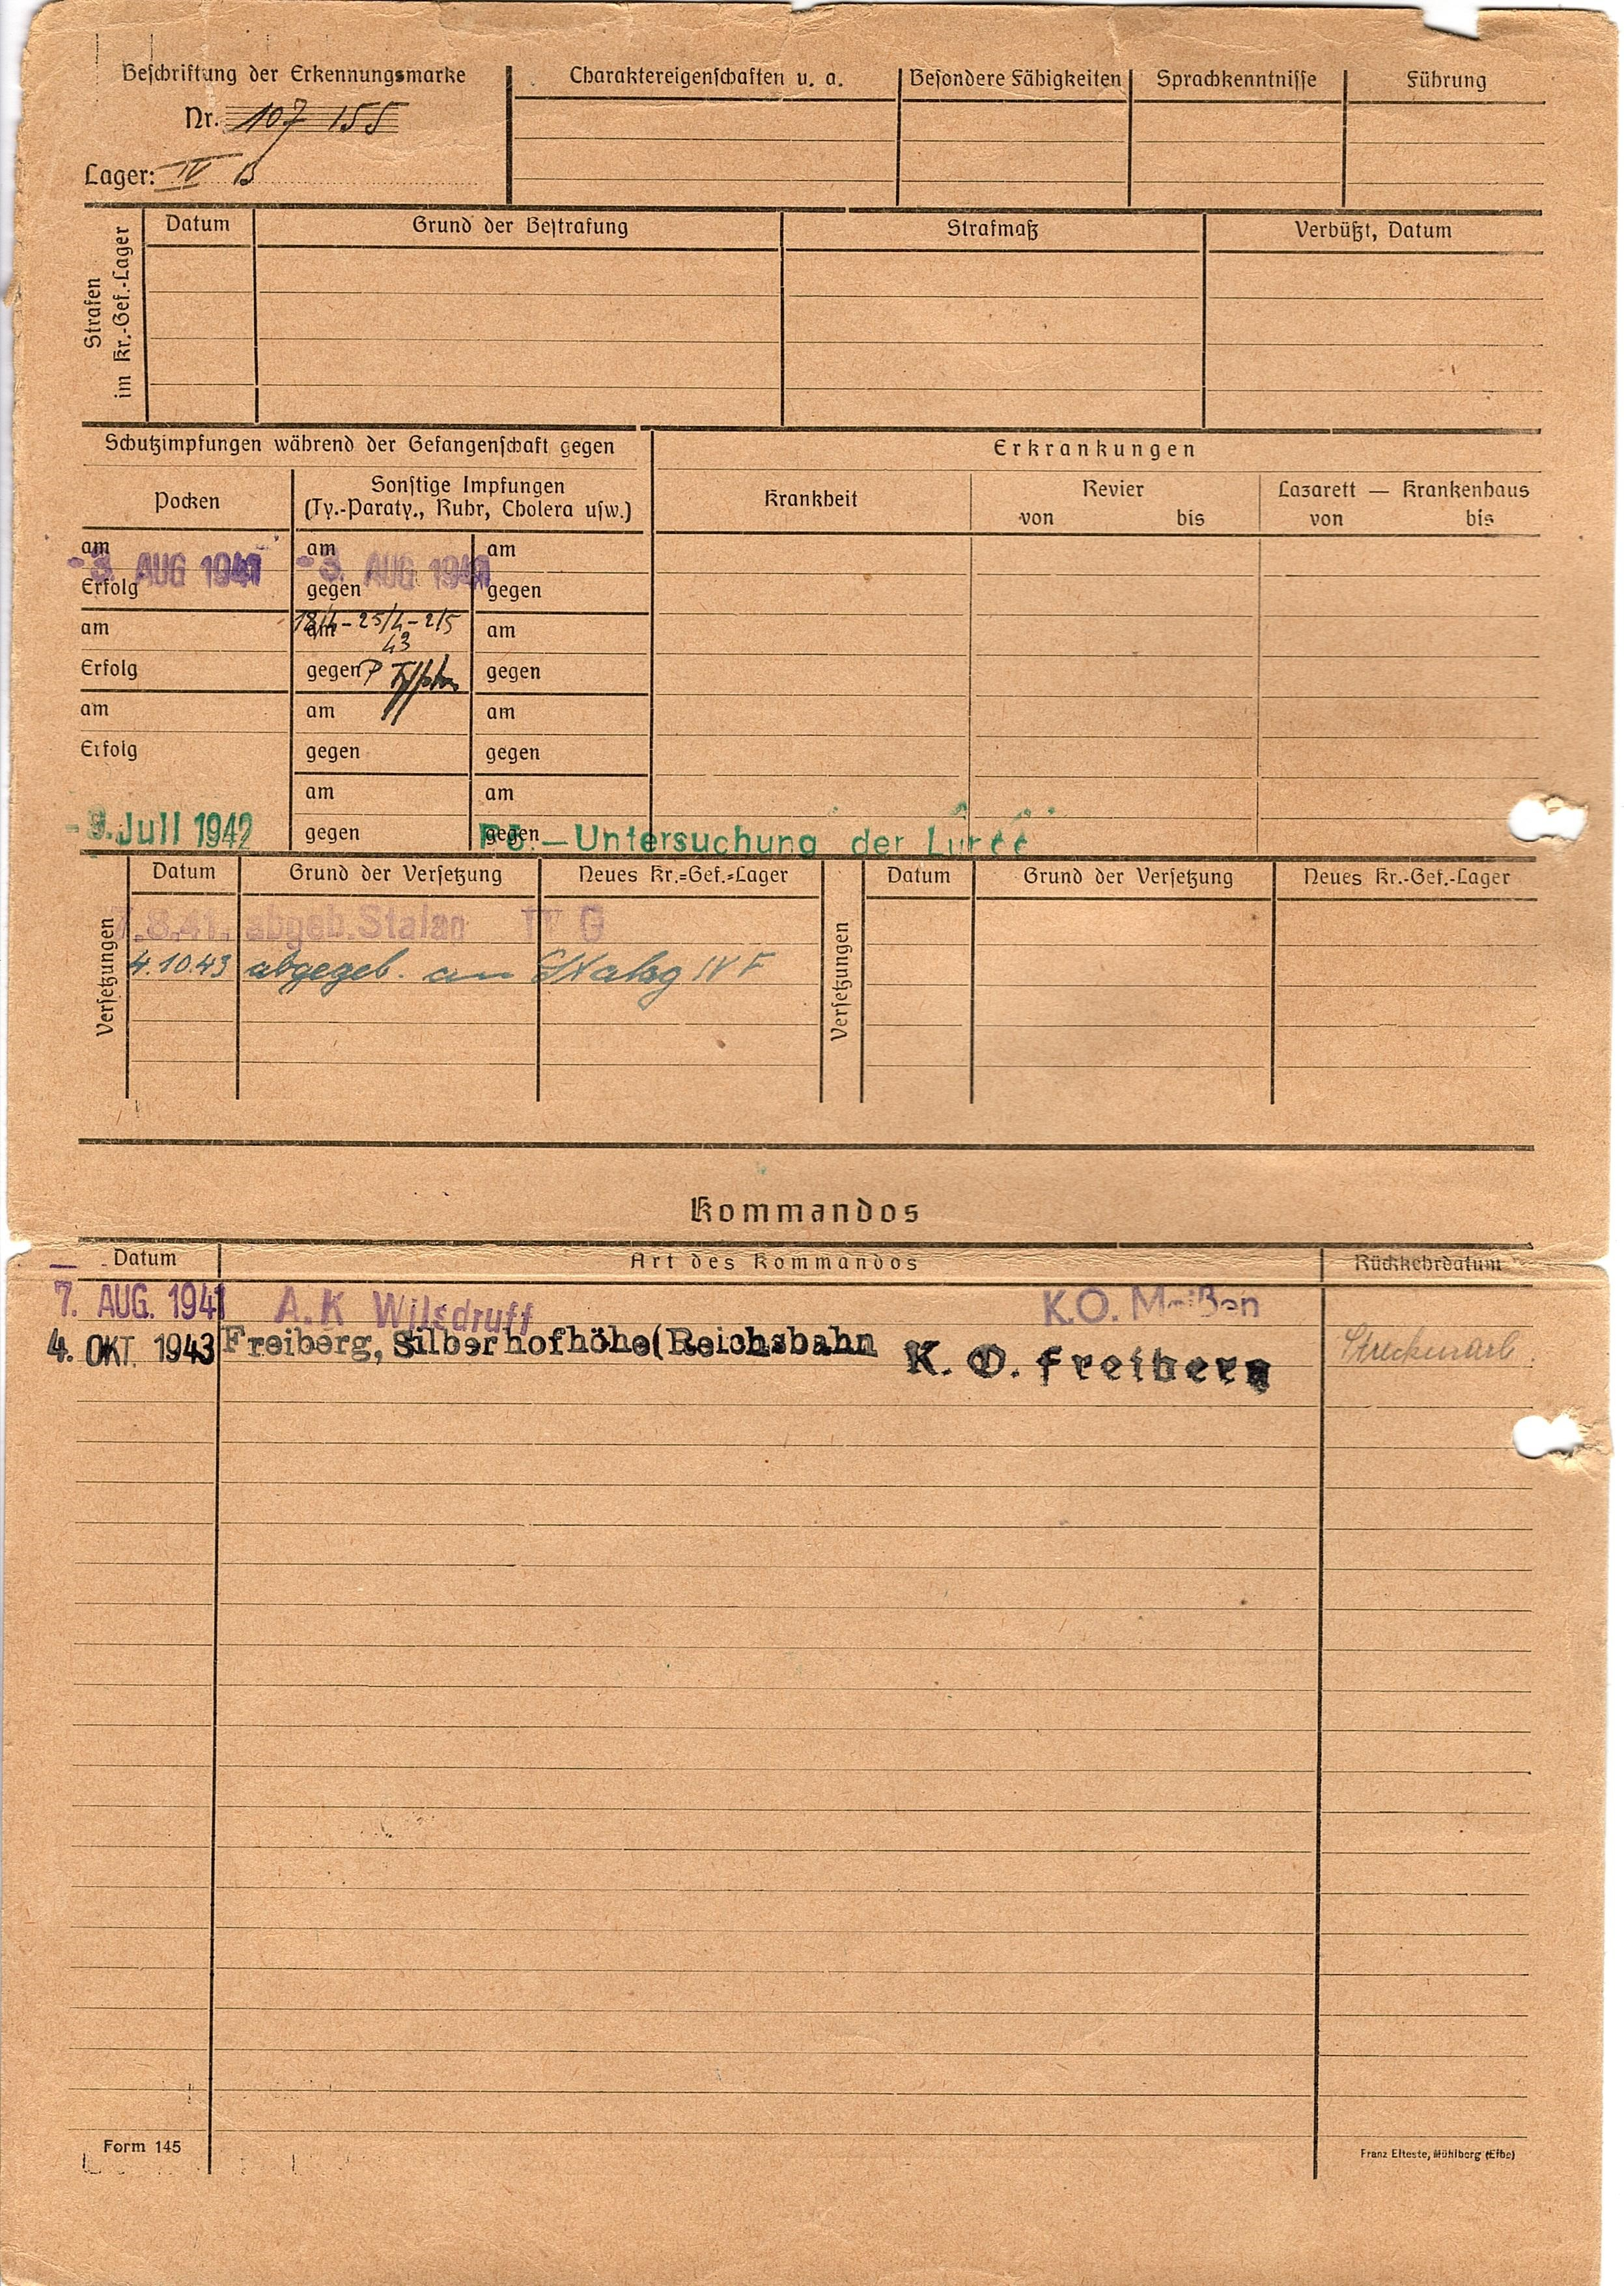 Beschriftung der Erkennungsmarke
Nr. 107 155
Lager: IV B
Charaktereigenschaften u. a.
Besondere Fähigkeiten
Sprachkenntnisse
Führung
Strafen im Kr.-Gef.-Lager
Datum
Grund der Bestrafung
Strafmaß
Verbüßt, Datum
Schutzimpfungen während der Gefangenschaft gegen
Erkrankungen
Pocken
Sonstige Impfungen
(Ty.-Paraty., Ruhr, Cholera usw.)
Krankheit
Revier
von bis
Lazarett — Krankenhaus
von bis
am am am
-3. AUG 1941 -3. AUG 1941
Erfolg gegen gegen
18/4-25/4-2/5
am am am
43
Erfolg gegen P Typhus gegen
am am am
Erfolg gegen gegen
am am
-9. Juli 1942 gegen gegen -Untersuchung der
Versetzungen
Datum
Grund der Versetzung
Neues Kr.=Gef.=Lager
Versetzungen
Datum
Grund der Versetzung
Neues Kr.-Gef.-Lager
7.8.41. abgeb. Stalag IV G
4.10.43 abgegeb. an Stalag IV F
Kommandos
Datum
Art des Kommandos
Rückkehrdatum
7. AUG. 1941 A.K Wilsdruff K.O. Meißen
4. OKT. 1943 Freiberg, Silberhofhöhe(Reichsbahn K. O. Freiberg Streckenarb.
Form 145
Franz Elteste, Mühlberg (Elbe)